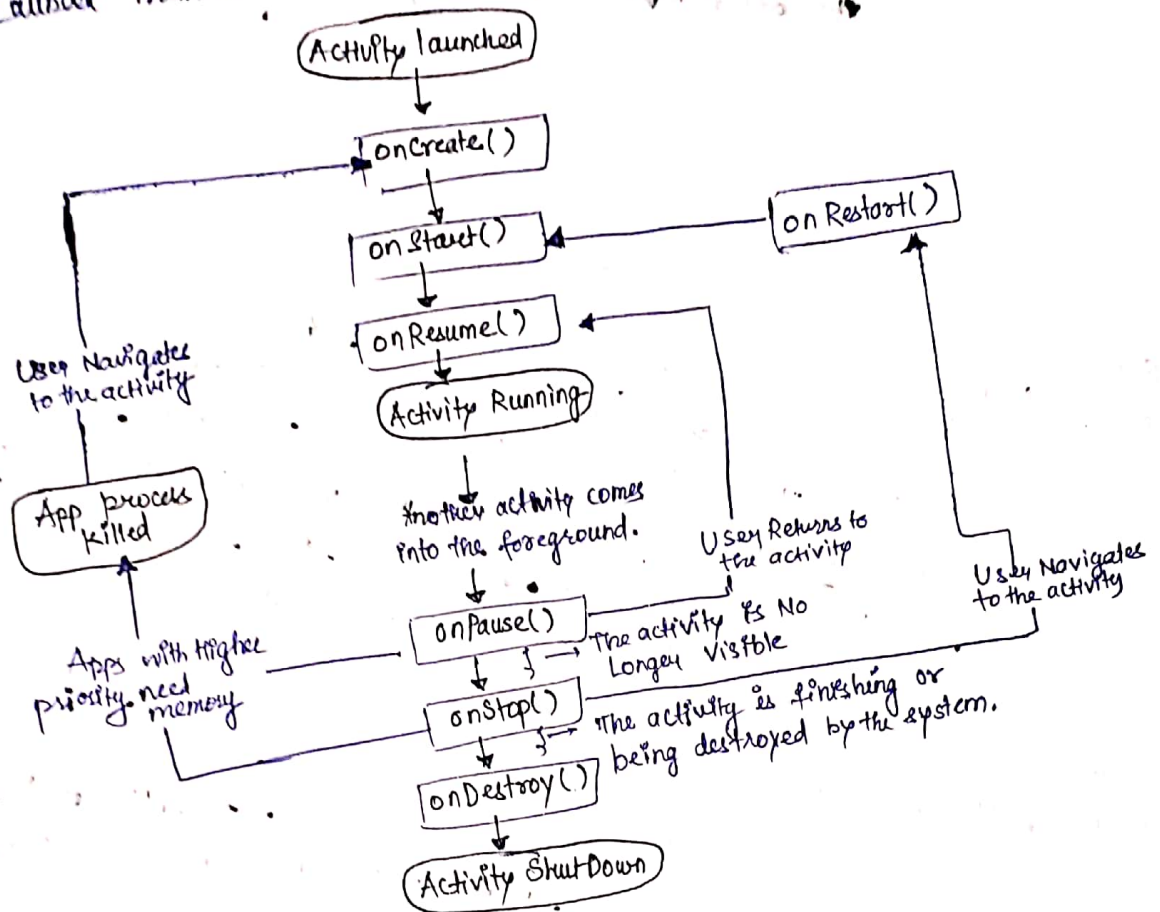 Activity launched
onCreate()
onStart()
on Restart()
onResume()
User Navigates
to the activity
Activity Running
App process
killed
Another activity comes
into the foreground.
User Returns to
the activity
User Navigates
to the activity
onPause()
The activity is No
Longer Visible
Apps with Higher
priority need
memory
onStop()
The activity is finishing or
being destroyed by the system.
onDestroy()
Activity ShutDown